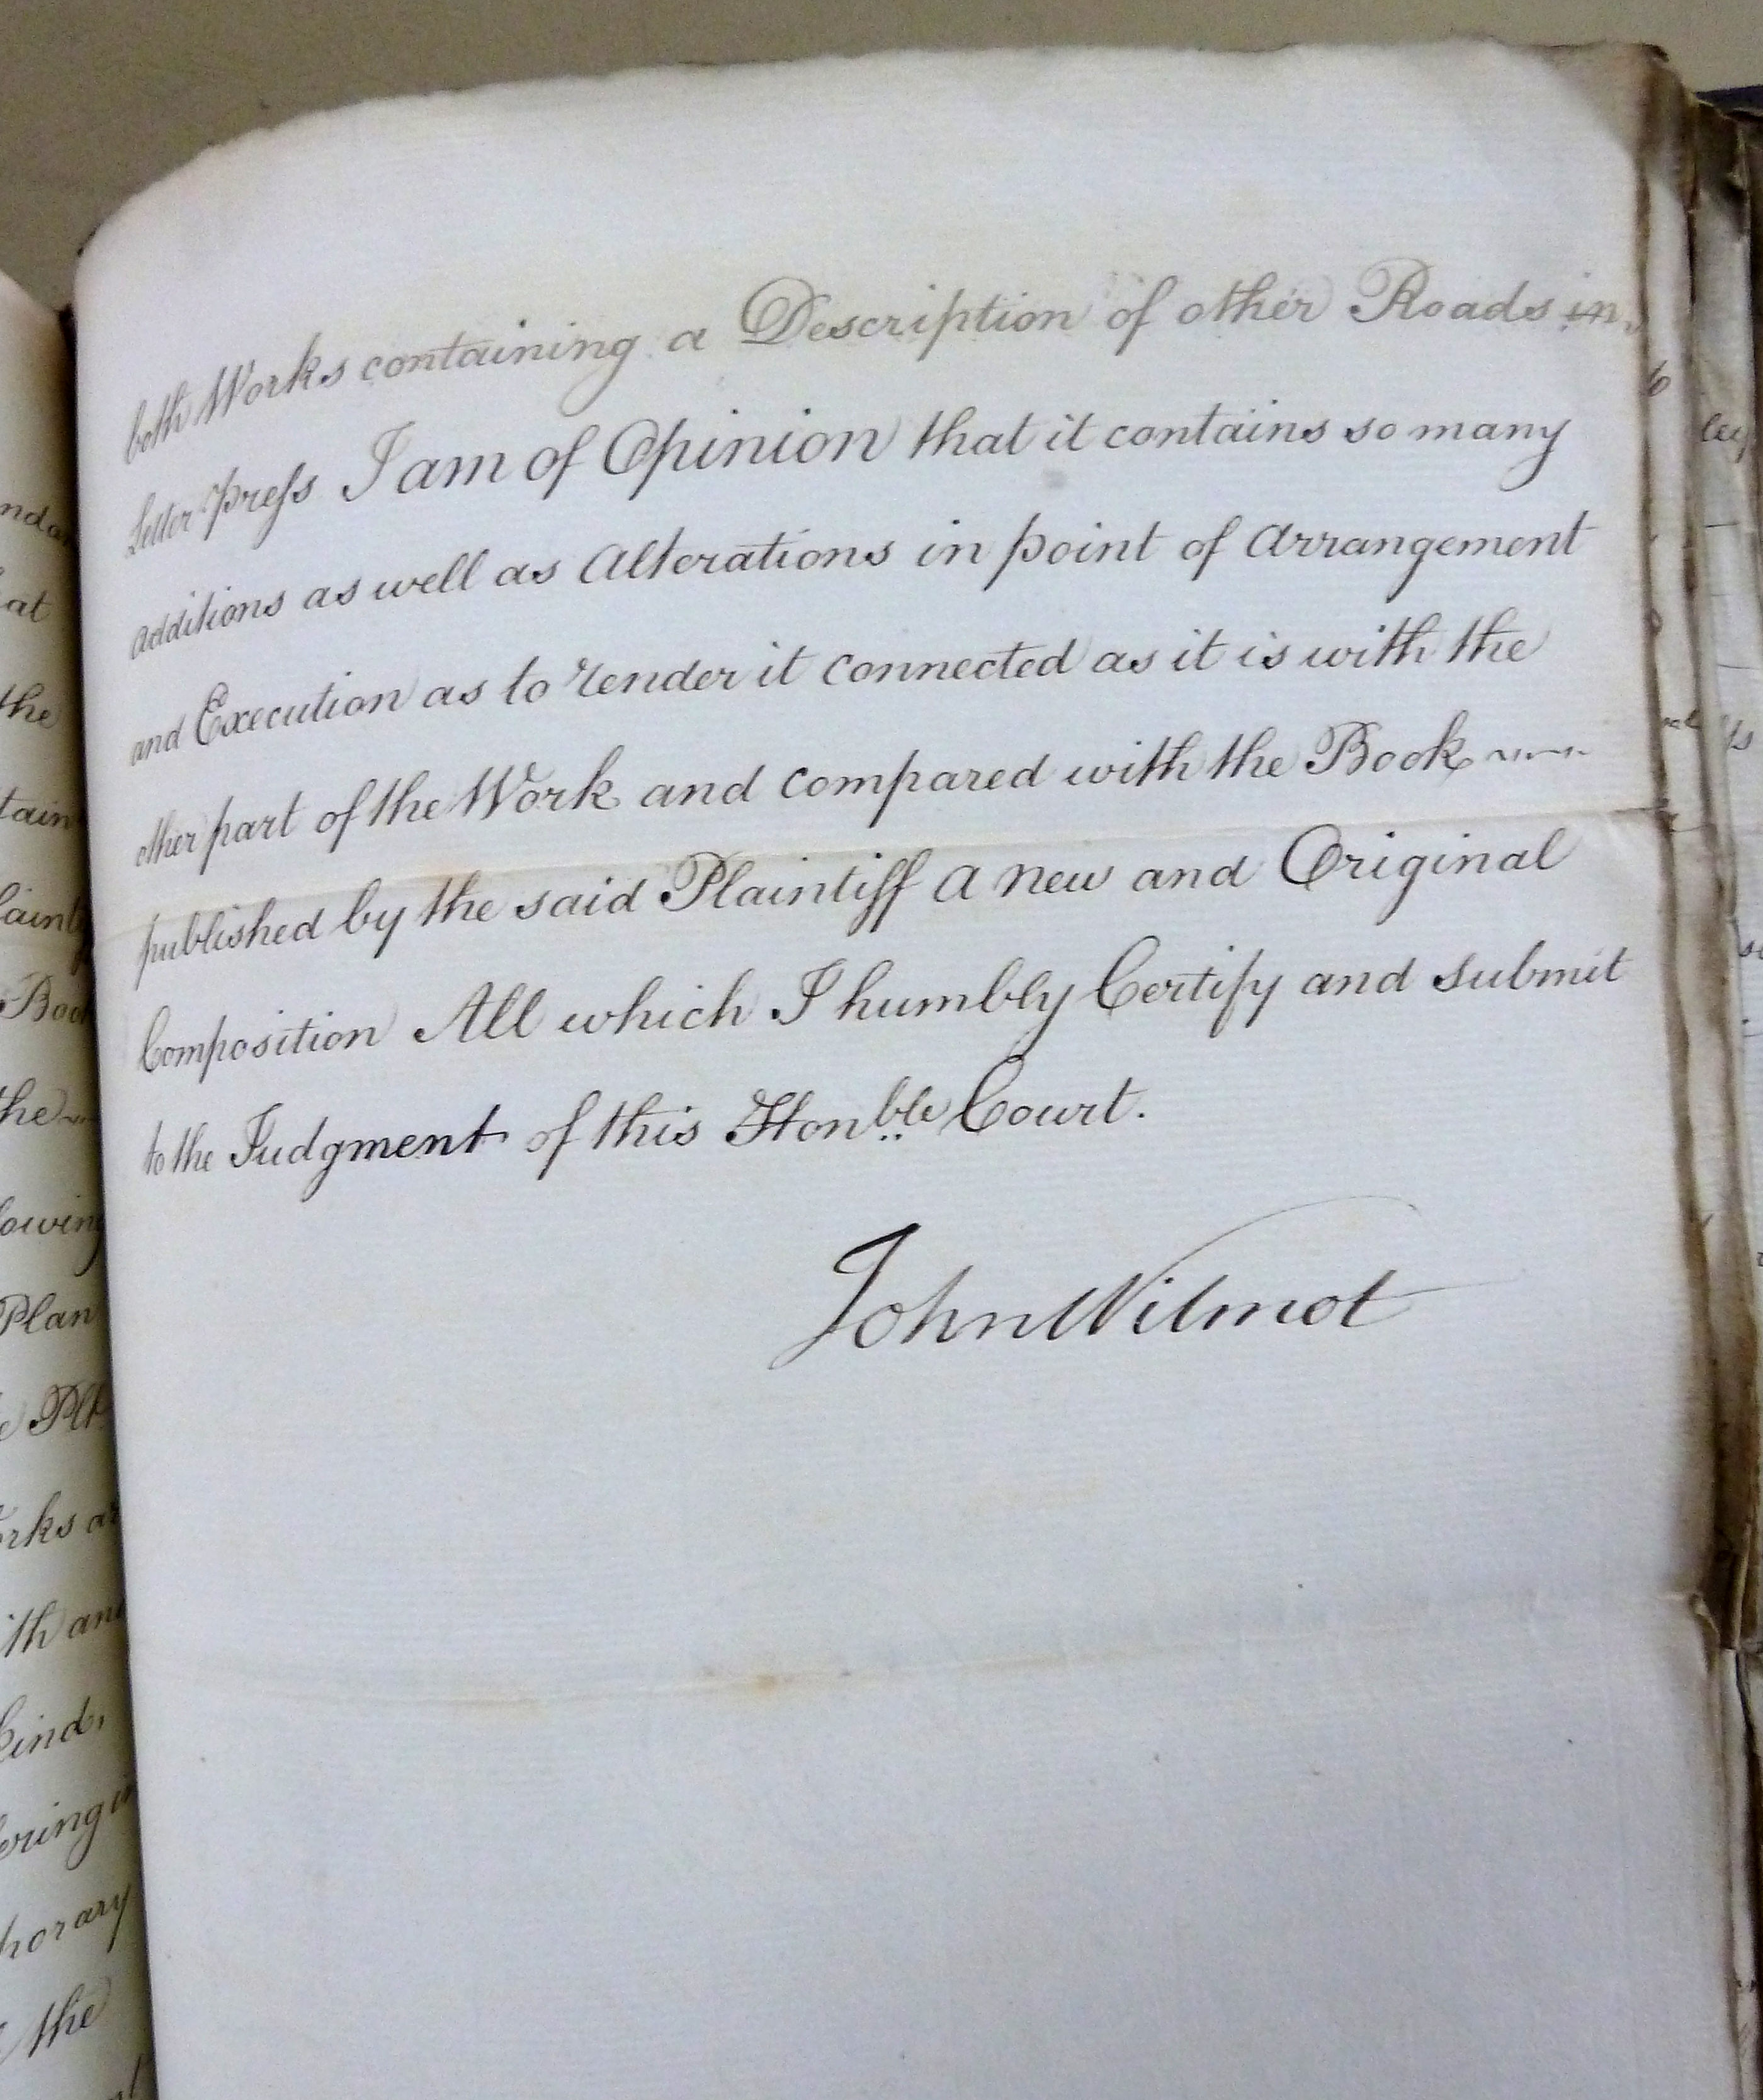 both Works containing a Description of other Roads in
Letter press I am of Opinion that it contains so many
additions as well as Alterations in point of Arrangement
and Execution as to render it connected as it is with the
other part of the Work and compared with the Book
published by the said Plaintiff a new and Original
Composition All which I humbly Certify and submit
to the Judgment of this Honble Court.
John Wilmot
at
the
Book
the
Plan
and
kind,
the